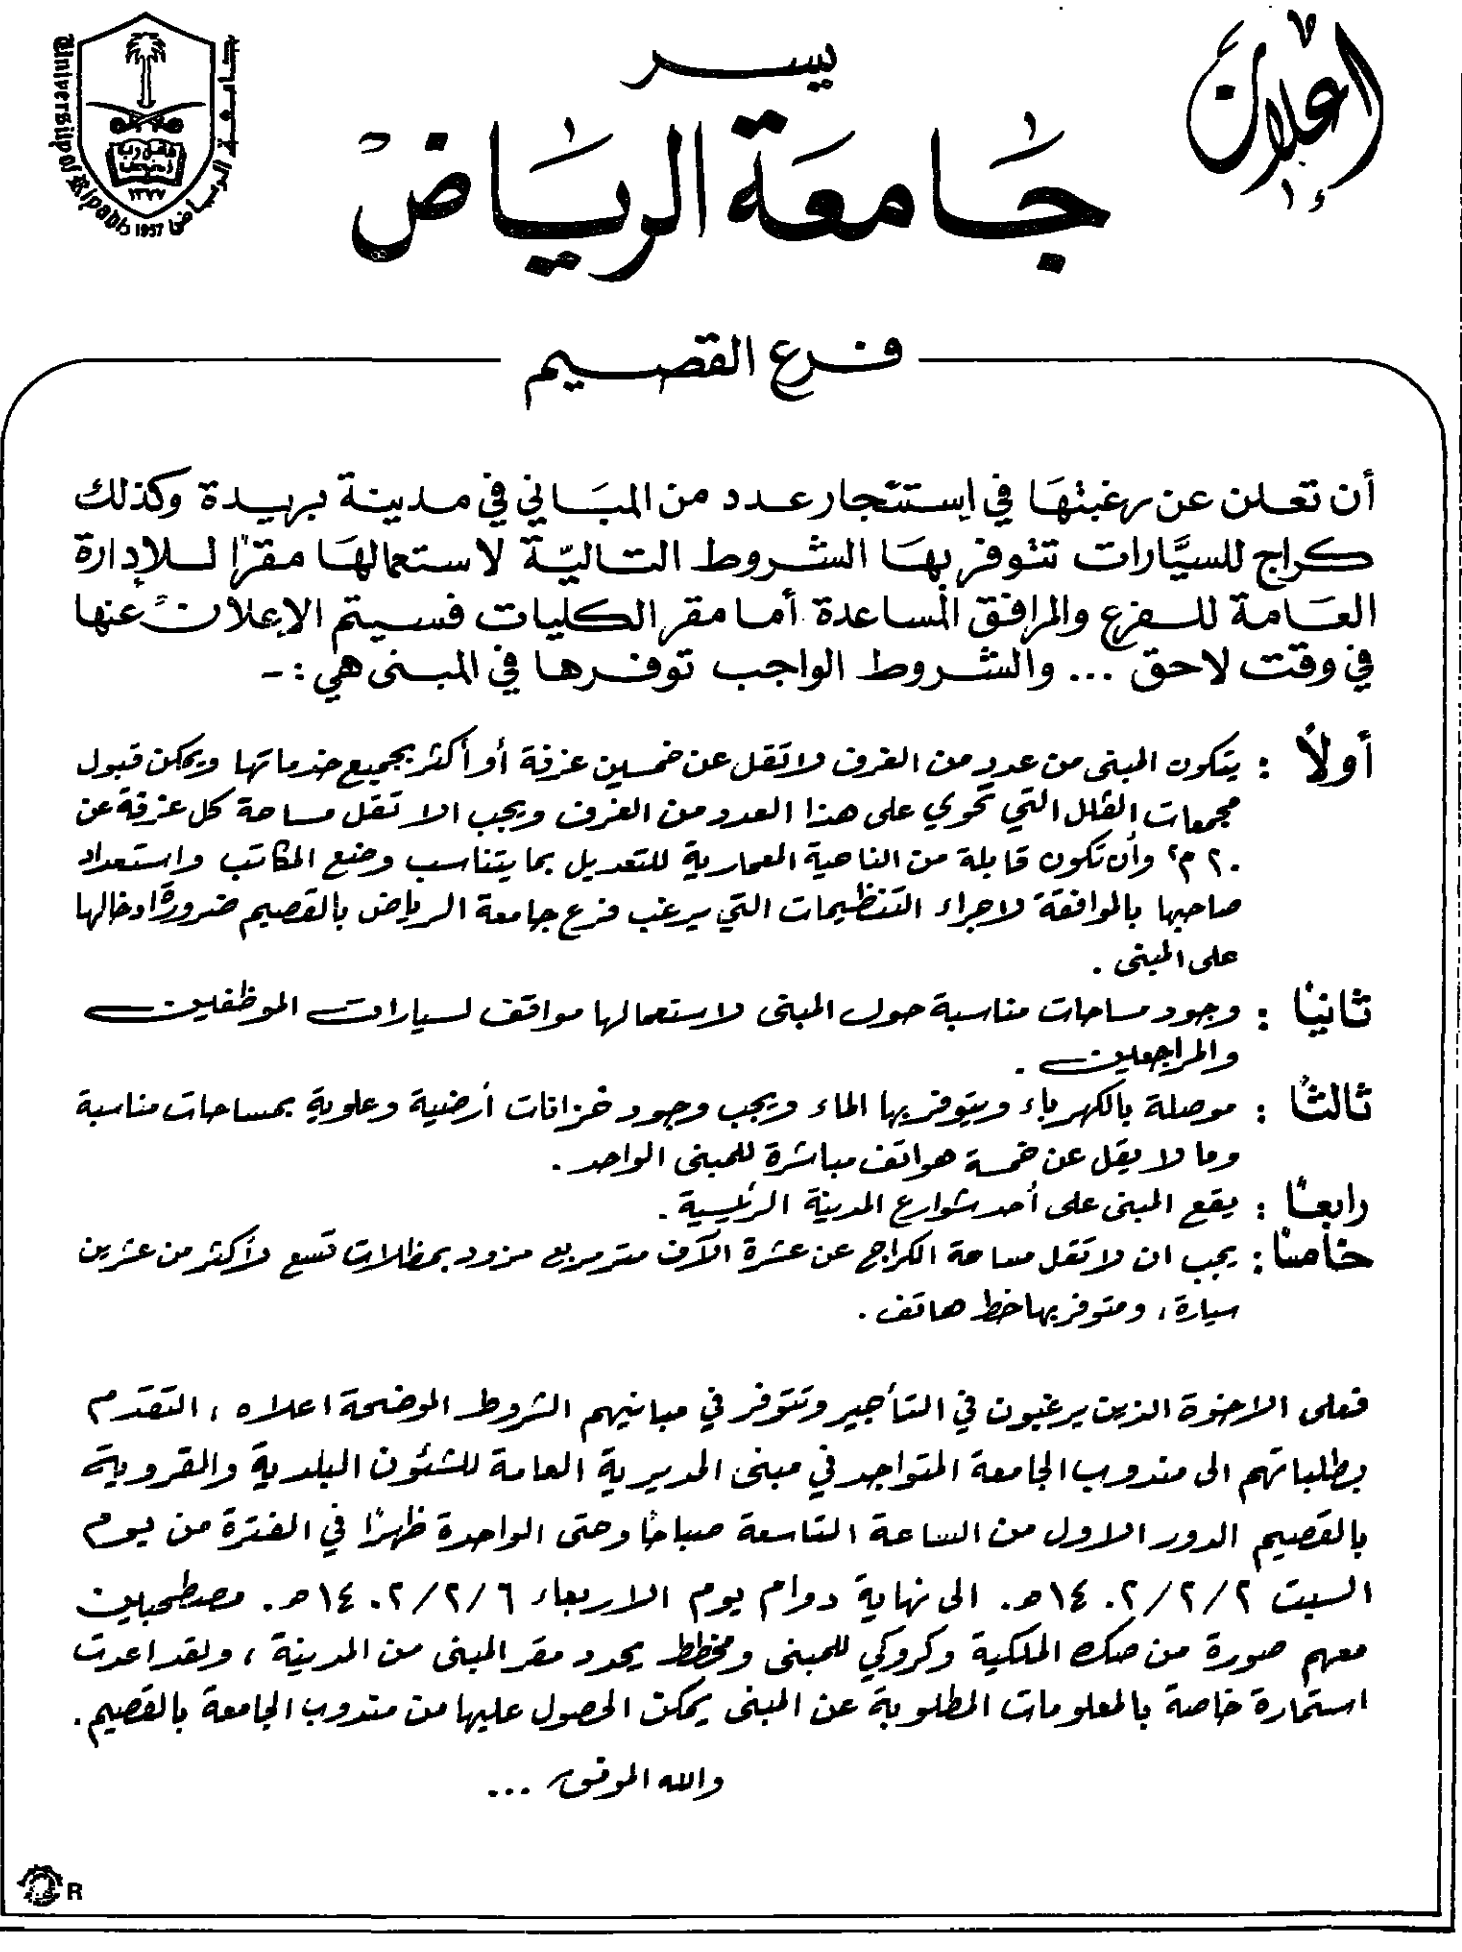 اعلان
يسر
جامعة الرياض
جامعة الرياض
University of Riyadh
١٣٧٧
1957
فرع القصيم
أن تعلن عن رغبتها في إستئجار عدد من المباني في مدينة بريدة وكذلك
كراج للسيَّارات تتوفر بها الشروط التاليّة لاستعمالها مقرًا للإدارة
العامة للفرع والمرافق المساعدة أما مقر الكليات فسيتم الإعلان عنها
في وقت لاحق ... والشروط الواجب توفرها في المبنى هي : -
أولاً : يتكون المبنى من عدد من الغرف لا تقل عن خمسين غرفة أو أكثر بجميع خدماتها ويمكن قبول
مجمعات الفلل التي تحوي على هذا العدد من الغرف ويجب الا تقل مساحة كل غرفة عن
٢٠ م٢ وأن تكون قابلة من الناحية المعمارية للتعديل بما يتناسب وضع المكاتب واستعداد
صاحبها بالموافقة لاجراء التنظيمات التي يرغب فرع جامعة الرياض بالقصيم ضرورة ادخالها
على المبنى .
ثانيًا : وجود مساحات مناسبة حول المبنى لاستعمالها مواقف لسيارات الموظفين
والمراجعين .
ثالثًا : موصلة بالكهرباء ويتوفر بها الماء ويجب وجود خزانات أرضية وعلوية بمساحات مناسبة
وما لا يقل عن خمسة هواتف مباشرة للمبنى الواحد .
رابعًا : يقع المبنى على أحد شوارع المدينة الرئيسية .
خامسًا : يجب ان لا تقل مساحة الكراج عن عشرة الآف متر مربع مزود بمظلات تسع لأكثر من عشرين
سيارة ، ومتوفر بها خط هاتف .
فعلى الاخوة الذين يرغبون في التأجير وتتوفر في مبانيهم الشروط الموضحة اعلاه ، التقدم
بطلباتهم الى مندوب الجامعة المتواجد في مبنى المديرية العامة للشئون البلدية والقروية
بالقصيم الدور الاول من الساعة التاسعة صباحًا وحتى الواحدة ظهرًا في الفترة من يوم
السبت ١٤٠٢/٢/٢ هـ . الى نهاية دوام يوم الاربعاء ١٤٠٢/٢/٦ هـ . مصطحبين
معهم صورة من صك الملكية وكروكي للمبنى ومخطط يحدد مقر المبنى من المدينة ، ولقد اعدت
استمارة خاصة بالمعلومات المطلوبة عن المبنى يمكن الحصول عليها من مندوب الجامعة بالقصيم .
والله الموفق ...
R